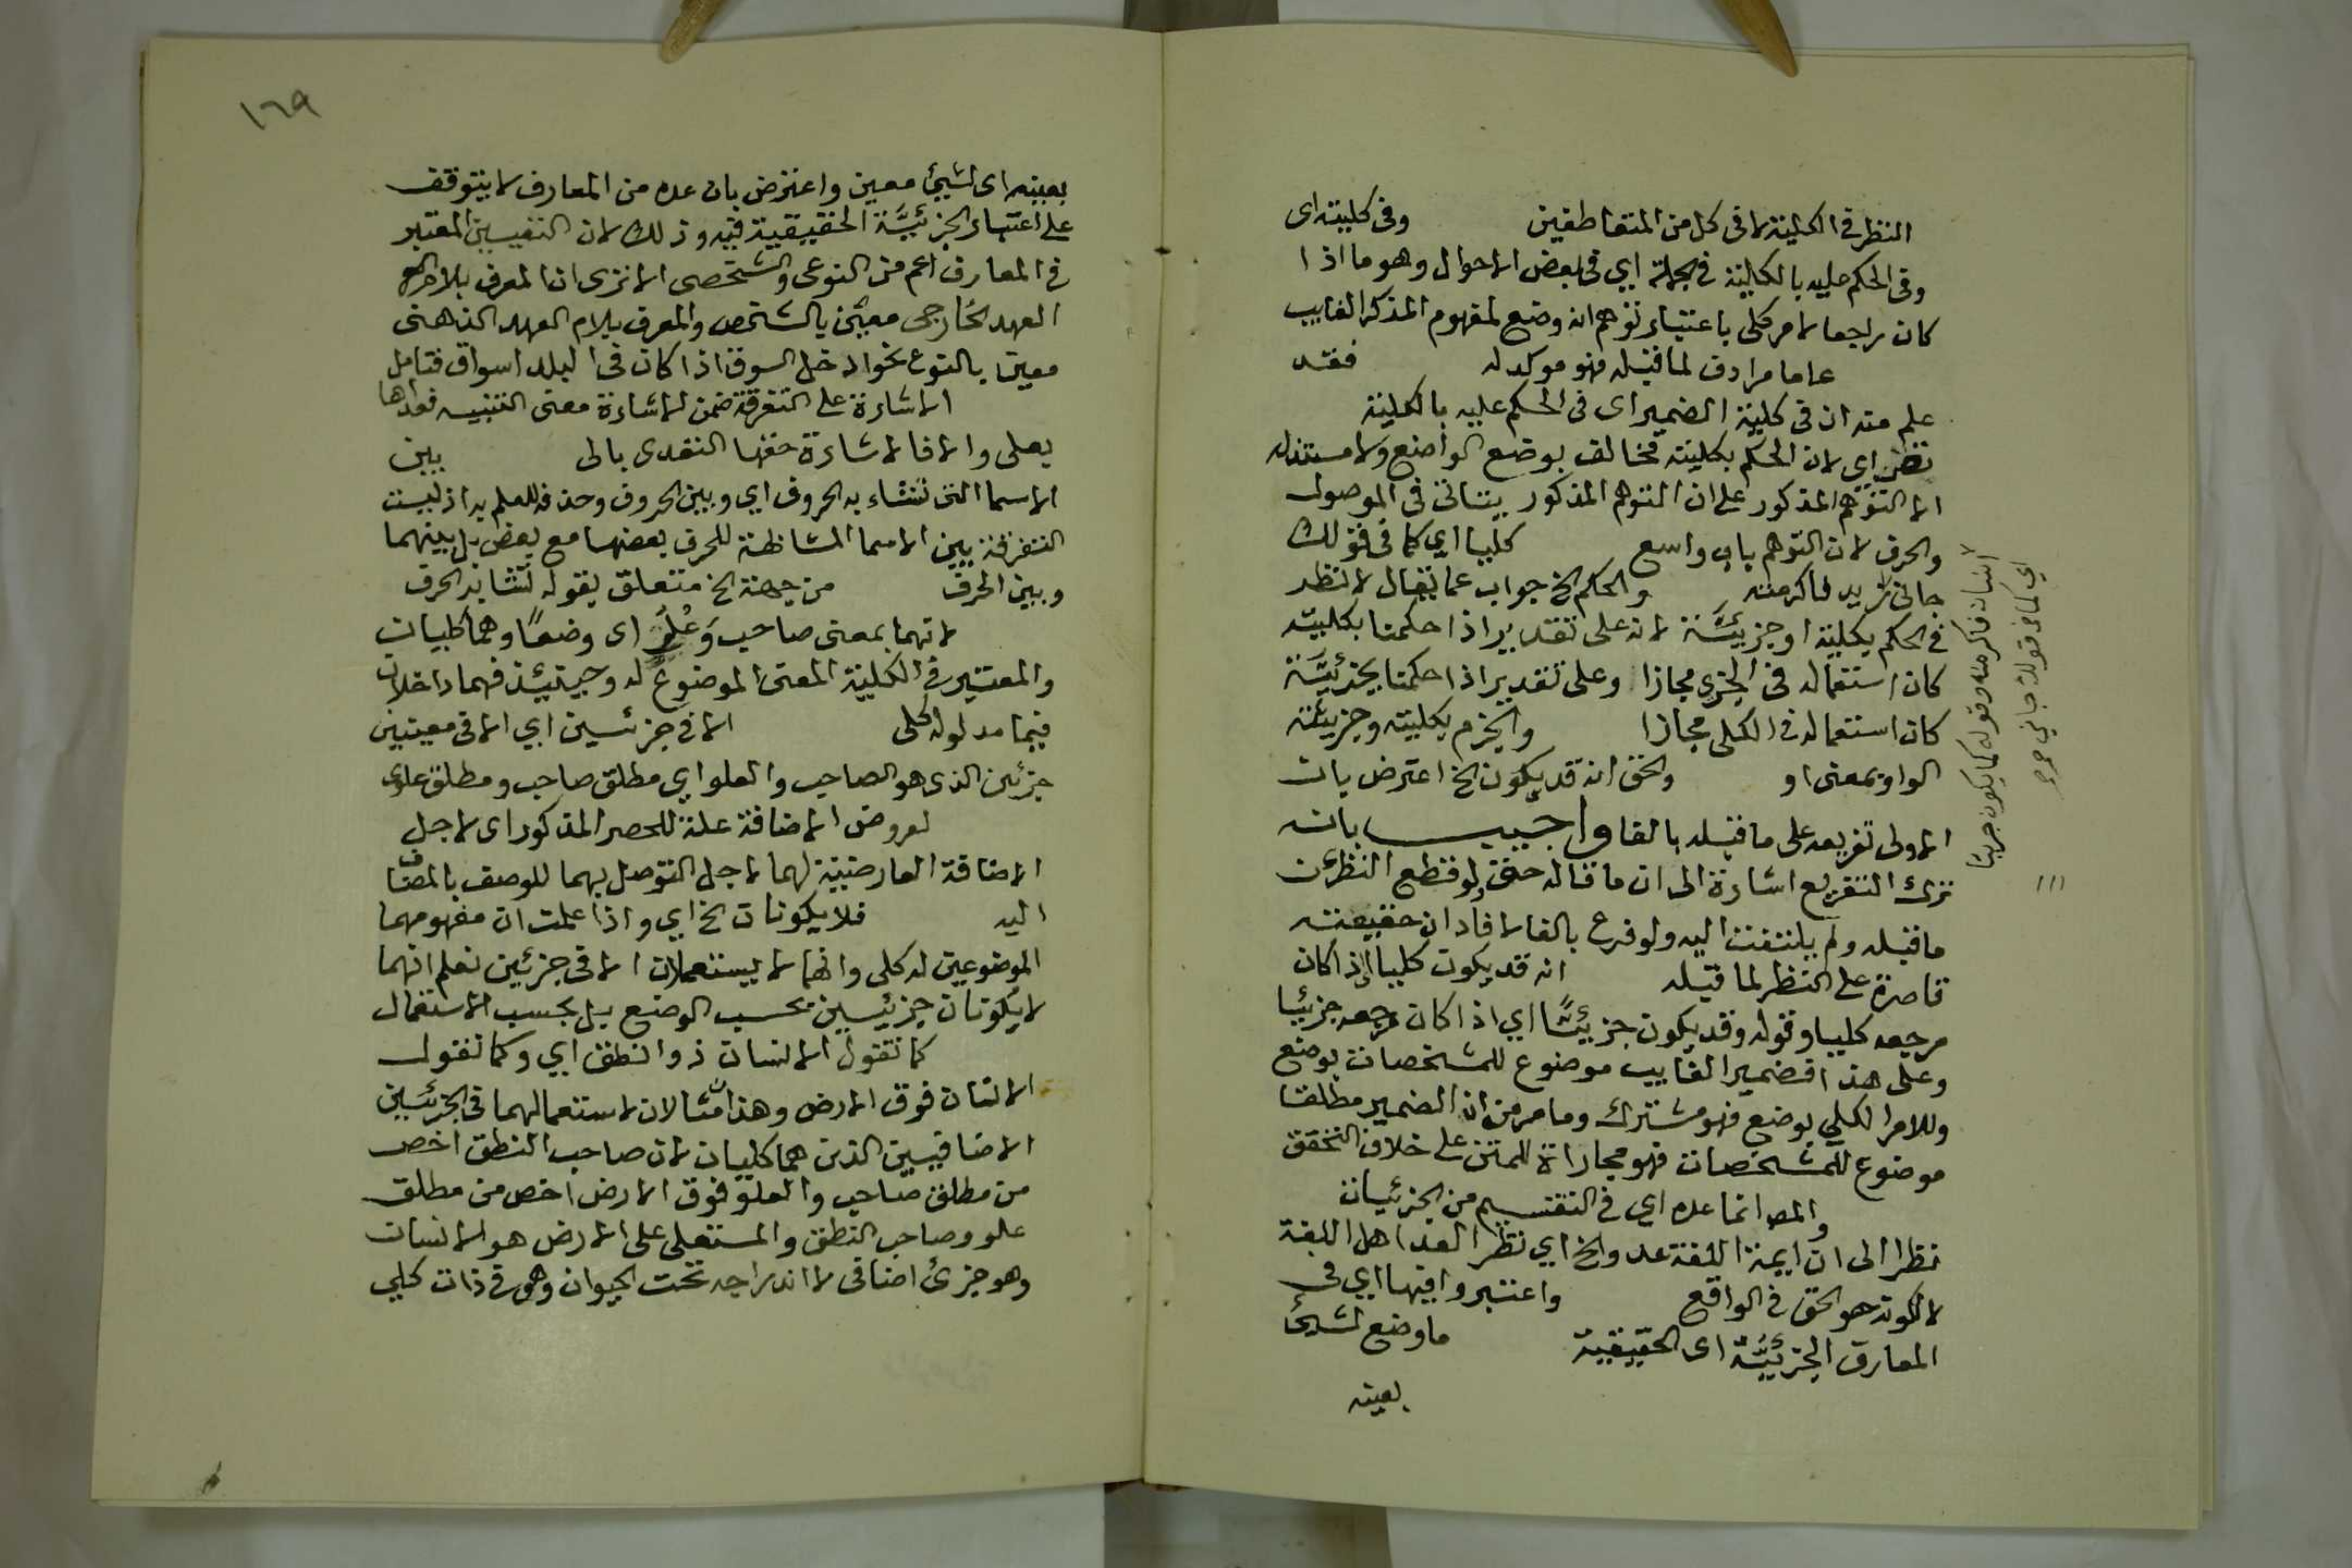 النظر في الكلية لا في كل من المتعاطفين وفي كليته اى
وفي الحكم عليه بالكلية في الجملة اي في بعض الاحوال وهو ما اذا
كان راجعا لامر كلى باعتبار توهم انه وضع لمفهوم المذكر الغايب
عاما مرادف لما قبله فهو موكد له فقد
علم منه ان في كلية الضمير اى في الحكم عليه بالكلية
نظرا اي لان الحكم بكليته مخالف بوضع الواضع ولا مستند له
الا التوهم المذكور على ان التوهم المذكور يتاتى في الموصول
والحرف لان التوهم باب واسع كليا اي كما في قولك
جانى زيد فاكرمته والحكم الخ جواب عما يقال لا نظر
في الحكم بكليته او جزئيته لانه على تقدير اذا حكمنا بكليته
كان استعماله في الجزى مجازا وعلى تقدير اذا حكمنا بجزئيته
كان استعماله في الكلى مجازا والجزم بكليته وجزئيته
الواو بمعنى او والحق انه قد يكون الخ اعترض بان
الاولى تفريعه على ما قبله بالفا واجيب بانه
ترك التفريع اشارة الى ان ما قاله حق ولو قطع النظر عن
ما قبله ولم يلتفت اليه ولو فرع بالفا لافاد ان حقيقته
قاصرة على النظر لما قبله انه قد يكون كليا اذا كان
مرجعه كليا وقوله وقد يكون جزئيا اي اذا كان مرجعه جزئيا
وعلى هذا فضمير الغايب موضوع للمشخصات بوضع
وللامر الكلي بوضع فهو مشترك وما مر من ان الضمير مطلقا
موضوع للمشخصات فهو مجاراة للمتن على خلاف التحقق
والمص انما عده اي في التقسيم من الجزئيات
نظرا الى ان ايمة اللغة عدوا الخ اي نظرا لعد اهل اللغة
لا لكونه هو الحق في الواقع واعتبروا فيها اي في
المعارف الجزئية اى الحقيقية ما وضع لشئ
بعينه
انسان فاكرمته وقوله كما يكون جزيئا
اي كما في قولك جاني
١٦٩
بعينه اى لشئ معين واعترض بان عده من المعارف لا يتوقف
على اعتبار الجزئية الحقيقية فيه وذلك لان التعيين المعتبر
في المعارف اعم من النوعى والشخصى الا ترى ان المعرف بلام
العهد الخارجى معين بالشخص والمعرف بلام العهد الذهنى
معين بالنوع نحو ادخل السوق اذا كان في البلد اسواق فتامل
الاشارة على التفرقة ضمن الاشارة معنى التنبيه فعداها
بعلى والا فالاشارة حقها التعدى بالى بين
الاسما التى تشابه الحروف اي وبين الحروف وحذفه للعلم به اذ ليست
التفرقة بين الاسما المشابهة للحرف بعضها مع بعض بل بينهما
وبين الحرف من جهة الخ متعلق بقوله تشابه الحرف
لانهما بمعنى صاحب وَعُلُوٍّ اى وضعًا وهما كليان
والمعتبر في الكلية المعنى الموضوع له وحينئذ فهما داخلان
فيما مدلوله كلى الا في جزئيين اي الا في معينين
جزئين الذى هو الصاحب والعلو اي مطلق صاحب ومطلق علو
لعروض الاضافة علة للحصر المذكور اى لاجل
الاضافة العارضية لهما لاجل التوصل بهما للوصف بالمضاف
اليه فلا يكونان الخ اي واذا علمت ان مفهومهما
الموضوعين له كلى وانهما لا يستعملان الا في جزئين تعلم انهما
لا يكونان جزئيين بحسب الوضع بل بحسب الاستعمال
كما تقول الانسان ذو النطق اي وكما تقول
الانسان فوق الارض وهذان مثالان لاستعمالهما في الجزئيين
الاضافيين الذين هما كليان لان صاحب النطق اخص
من مطلق صاحب والعلو فوق الارض اخص من مطلق
علو وصاحب النطق والمستعلى على الارض هو الانسان
وهو جزئ اضافى لاندراجه تحت الحيوان وهو في ذاته كلي